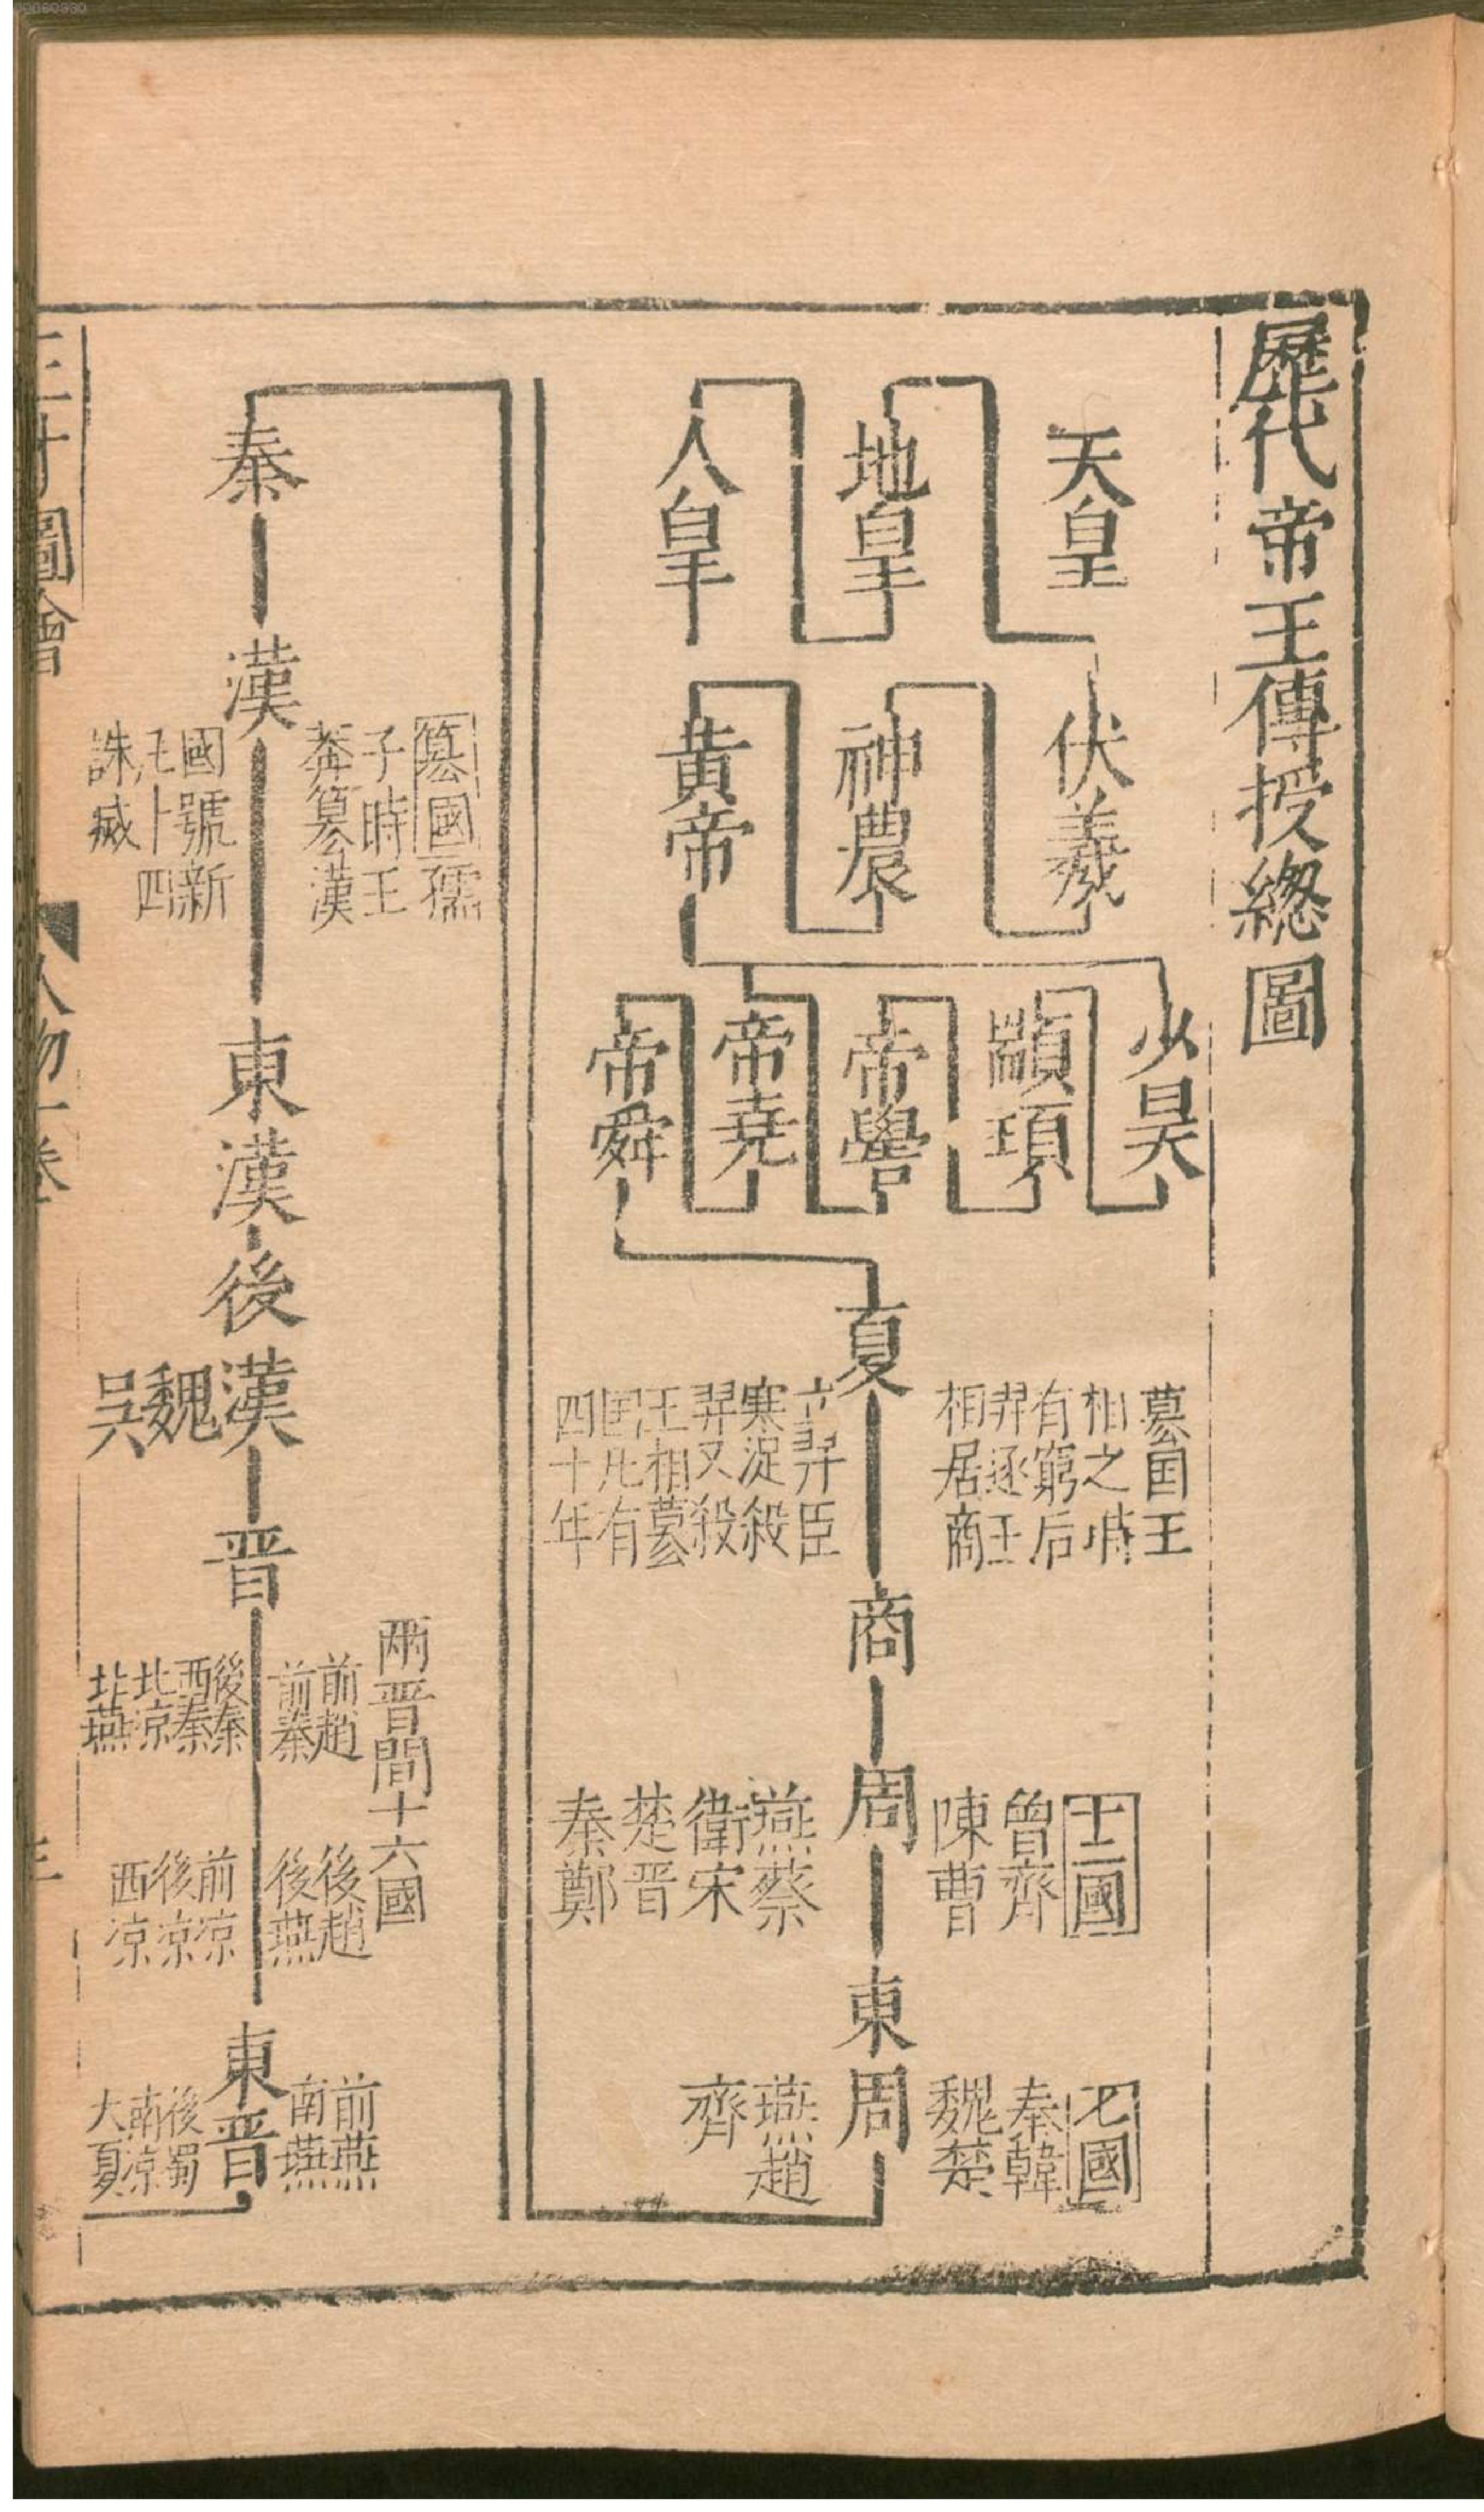 歷代帝王傳授緫圖
天皇
地皇
人皇
伏羲
神農
黃帝
少昊
顓頊
帝嚳
帝堯
帝舜
夏
墓国王
相之時
有窮后
羿逐王
相居商
立羿臣
寒浞殺
羿又殺
王相墓
国凡有
四十年
商
周
十二國
曾齊
陳曹
燕蔡
衛宋
楚晉
秦鄭
東周
七國
秦韓
魏楚
燕趙
齊
秦
漢
簒國孺
子時王
莽簒漢
國號新
凡十四
誅滅
東漢
後漢
魏
吳
晉
兩晉間十六國
前趙
前秦
後秦
西秦
北凉
北燕
後趙
後燕
前凉
後凉
西凉
東晉
前燕
南燕
後蜀
南凉
大夏
圖會
人物一卷
00060330